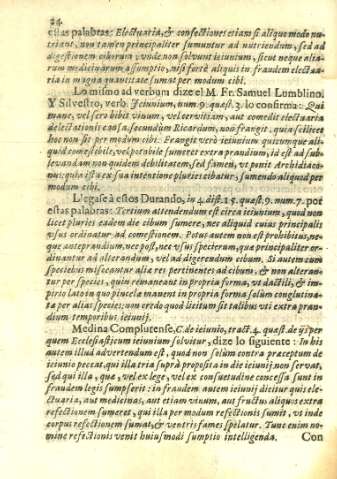 24
estas palabras: Electuaria, & confectiones etiam si aliquo modo nu-
triant, non tamen principaliter sumuntur ad nutriendum, sed ad
digestionem ciborum: unde non solvunt ieiunium, sicut neque alia-
rum medicinarum assumptio, nisi fortè aliquis in fraudem electua-
ria in magna quantitate sumat per modum cibi.
Lo mismo ad verbum dize el M. Fr. Samuel Lumblino.
Y Silvestro, verb. Ieiunium, num. 9. quæst. 3. lo confirma: Qui
mane, vel sero bibit vinum, vel cervisiam, aut comedit electuaria
delectationis causa, secundum Ricardum, non frangit, quia scilicet
hoc non fit per modum cibi: Frangit verò ieiunium quicumque ali-
quid comestibile, vel portabile sumeret extra prandium, id est ad sub-
levandam non quidem debilitatem, sed famem, vt ponit Archidiaco-
nus: quia est ex sua intentione pluries cibatur, sumendo aliquid per
modum cibi.
Llegase à estos Durando, in 4. dist. 15. quæst. 9. num. 7. por
estas palabras: Tertium attendendum est circa ieiunium, quod non
licet pluries eadem die cibum sumere, nec aliquid cuius principalis
vsus ordinatur ad comestionem. Potus autem non est prohibitus, ne-
que ante prandium, nec post, nec vsus specierum, quæ principaliter or-
dinantur ad alterandum, vel ad digerendum cibum. Si autem cum
speciebus misceantur alia res pertinentes ad cibum, & non alteran-
tur per species, quin remaneant in propria forma, vt dactili, & im-
pirio lato in quo pinuela manent in propria forma solùm conglutina-
ta per alias species: non credo quod licitum sit talibus vti extra pran-
dium temporibus ieiunij.
Medina Complutense, C. de ieiunio, tract. 4. quæst. de ijs per
quem Ecclesiasticum ieiunium solvitur, dize lo siguiente: In his
autem illud advertendum est, quod non solùm contra præceptum de
ieiunio peccat, qui illa tria suprà proposita in die ieiunij non servat,
sed qui illa, quæ, vel ex lege, vel ex consuetudine concessa sunt in
fraudem legis sumpserit: in fraudem autem ieiunij dicitur quis elec-
tuaria, aut medicinas, aut etiam vinum, aut fructus aliquos extra
refectionem sumeret, qui illa per modum refectionis sumit, vt inde
corpus refectionem sumat, & ventris fames expelatur. Tunc enim no-
mine refectionis venit huiusmodi sumptio intelligenda. Con